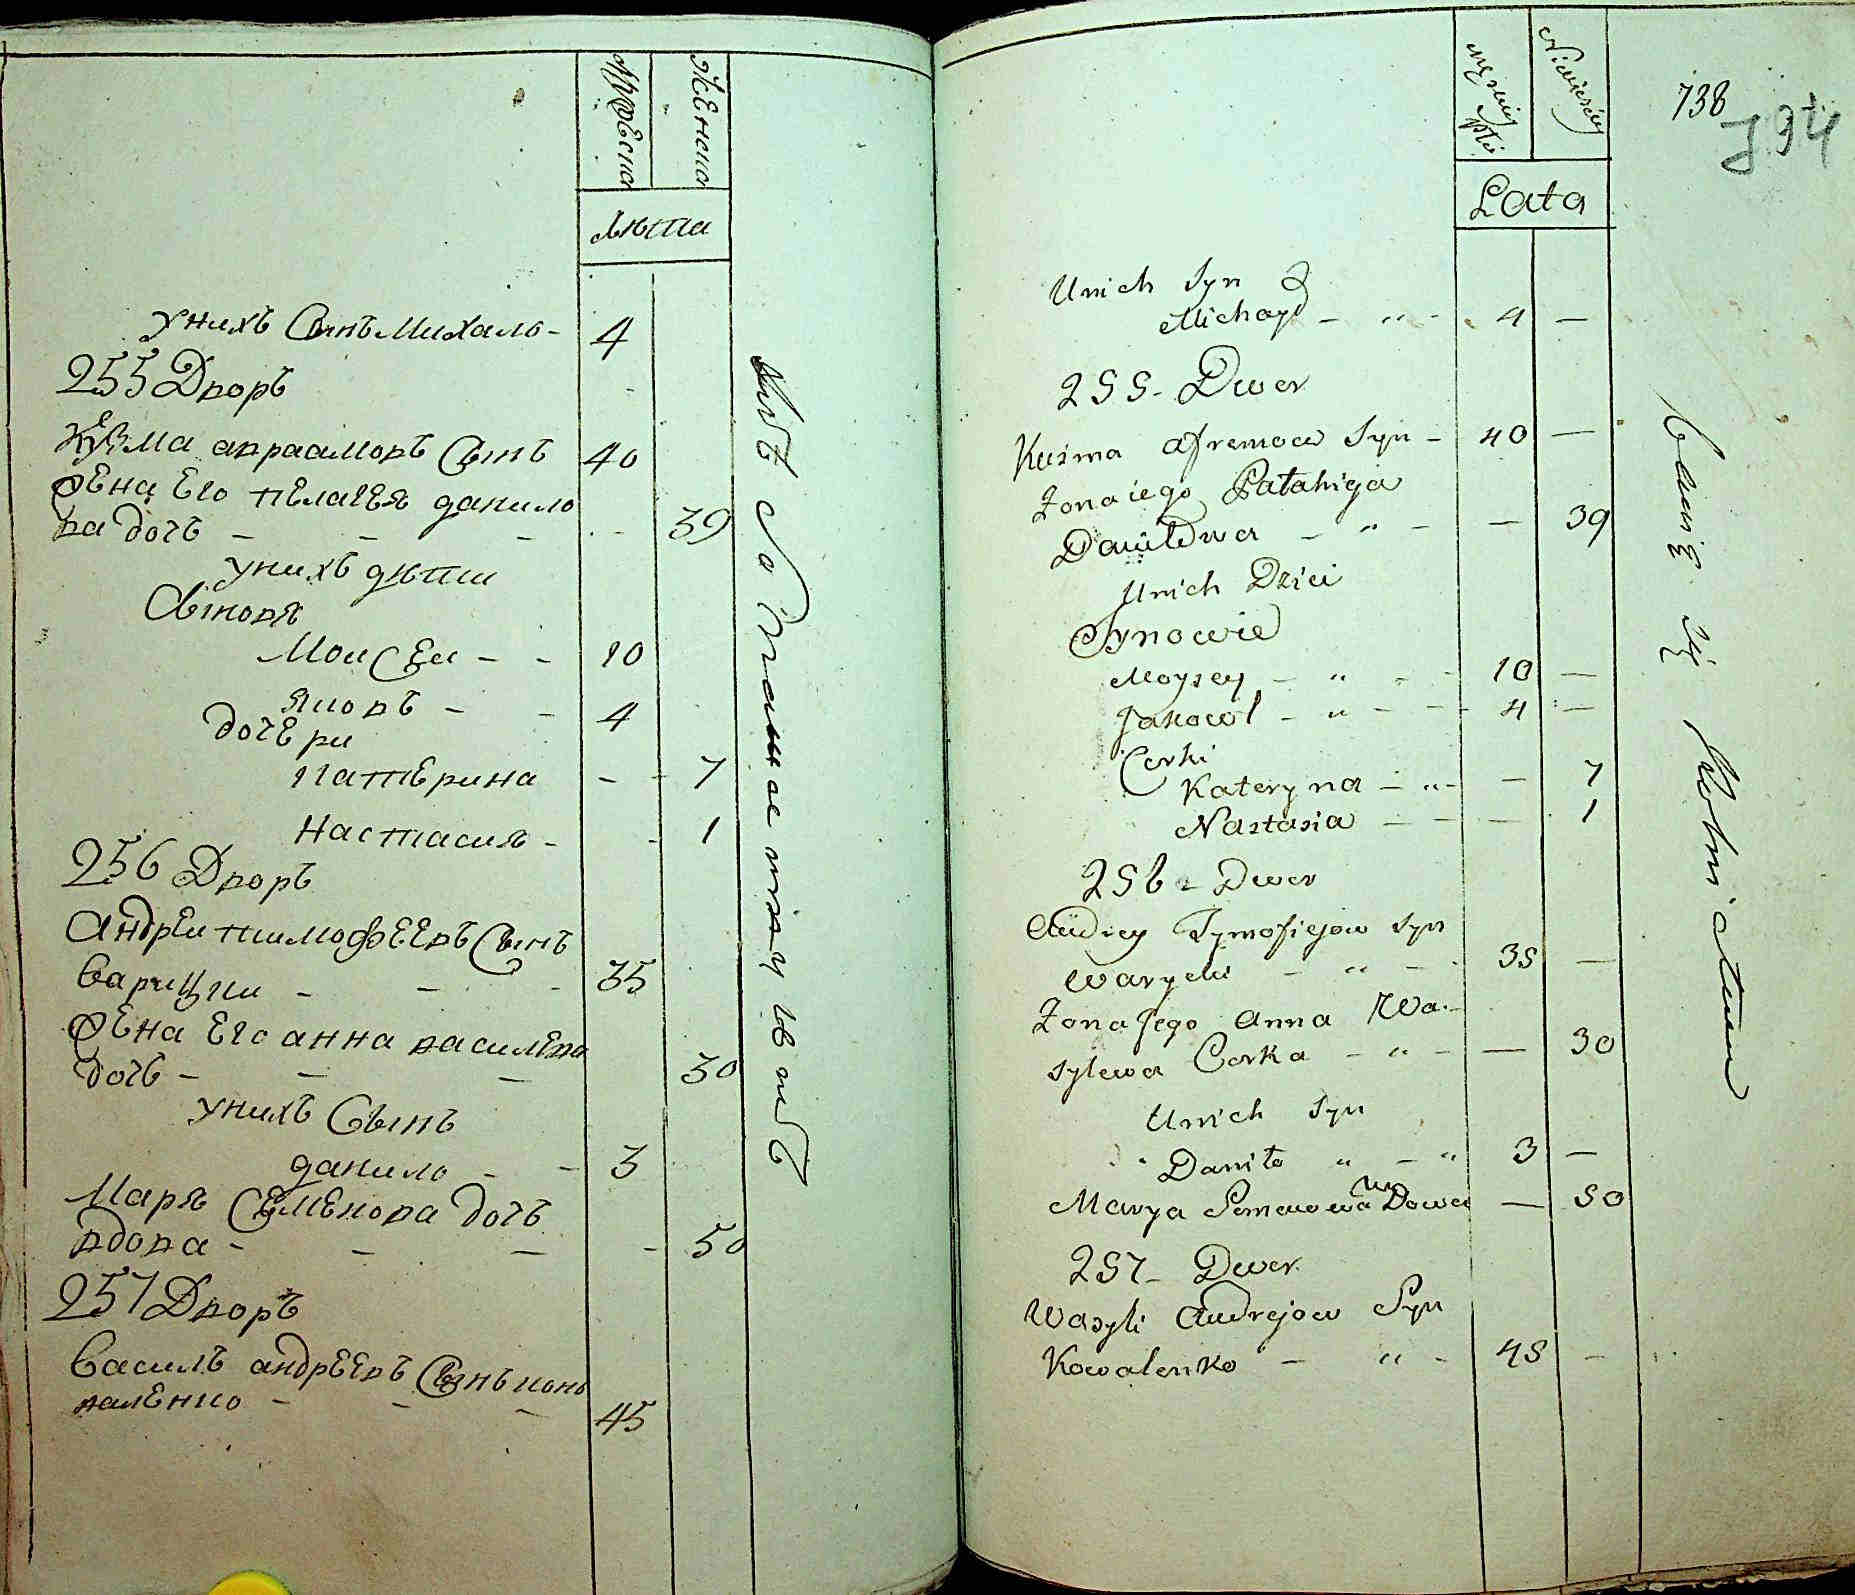 Мужеска
Женска
лѣта
унихъ Сынъ Михало – 4
255 Дворъ
Кузма авраамовъ Сынъ 40
Жена Его пелагея данило
ва дочь – – – 39
унихъ дѣти
Сыновя
Моисеи – – 10
Яковъ – – 4
дочери
Катерина – – 7
Настасия – – 1
256 Дворъ
Андреи тимофеевъ Сынъ
Варицки – – – 35
Жена Его анна василева
дочь – – – 30
унихъ Сынъ
данило – – 3
Маря Семенова дочь
вдова – – – – 50
257 Дворъ
Василь андреевъ Сынъ кова
валенко – – – 45
738
Lata
Unich Syn
Michayl – „ – 4 –
255 – Dwor
Kuźma afremow Syn – 40 –
Zona iego Patahija
Daniłowa – „ – – 39
Unich Dzieci
Synowie
Moysey – „ – – 10 –
Jakow – „ – – – 4 –
Corki
Kateryna – „ – – 7
Nastasia – – – 1
256 – Dwor
Andrey Tymofiejow Syn
Warycki – „ – – 35 –
Zona Jego Anna Wa-
sylewa Corka – „ – – 30
Unich Syn
Daniło „ – „ 3 –
Marya Semenowa Wdowa – 50
257 – Dwor
Wasyli Andrejow Syn
Kowalenko – „ – 45 –